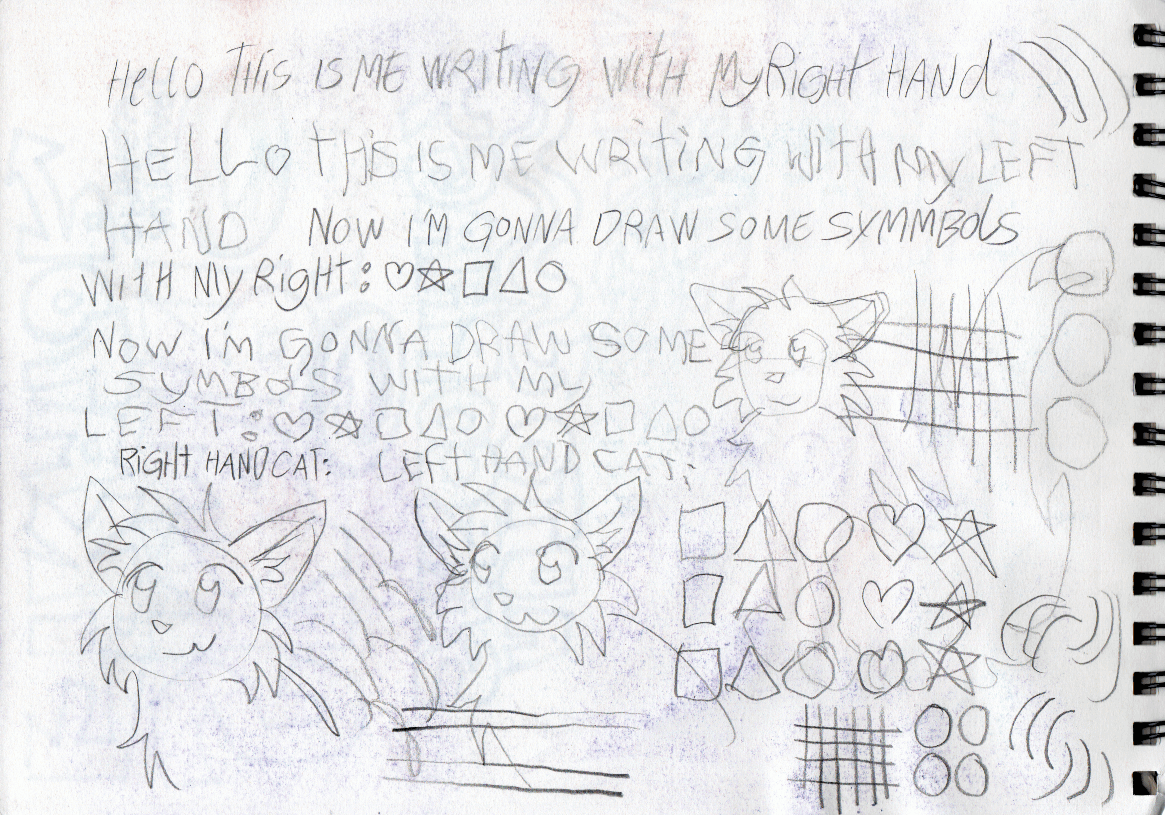 Hello THis IS ME WRITING WITH MyRight HAND
HELLO THIS IS ME WRITING WITH My LEFT
HAND NOW I'M GONNA DRAW SOME SYMMBOLS
WITH MyRight: ♡☆□△○
NOW I'm GONNA DRAW SOME
SYMBOLS WITH MY
LEFT: ♡☆□△○ ♡☆□△○
RIGHT HAND CAT: LEFT HAND CAT: